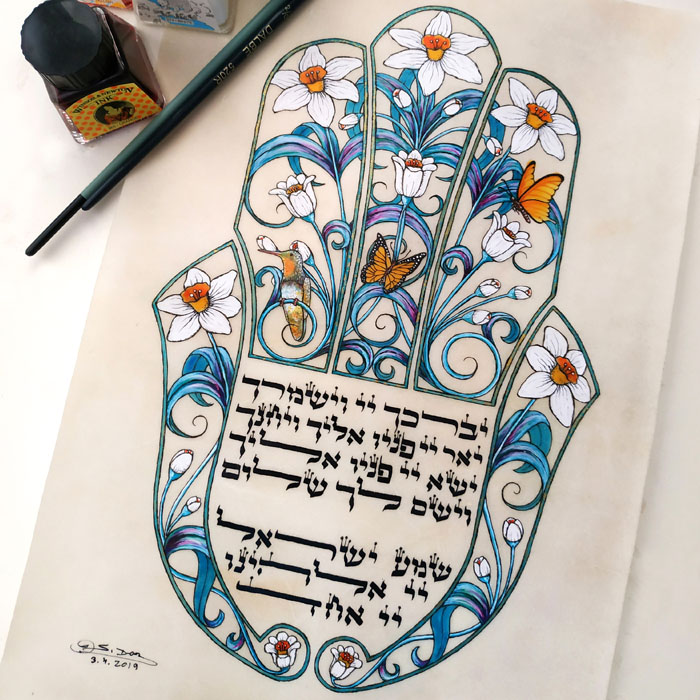 WINSOR & NEWTON
INK
DALBE 520R
יברכך יי וישמרך
יאר יי פניו אליך ויחנך
ישא יי פניו אליך
וישם לך שלום
שמע ישראל
יי אלהינו
יי אחד
S. Dor
3.4.2019